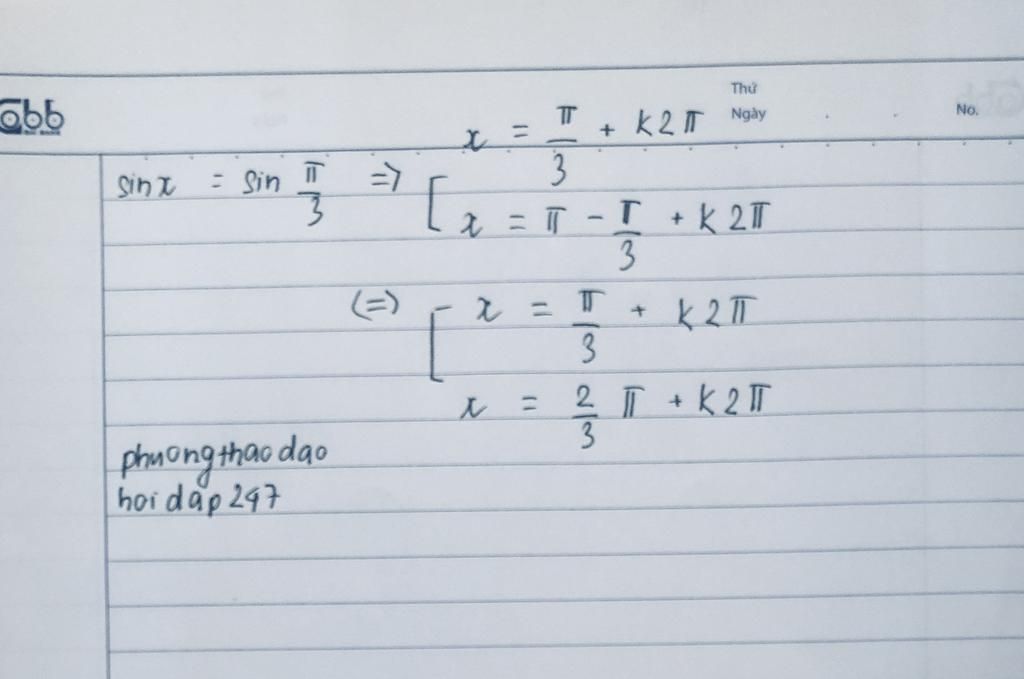 abb
Thứ
Ngày
No.
x = π/3 + k2π
sinx = sin π/3 => [
x = π - π/3 + k2π
(=) [ x = π/3 + k2π
x = 2/3 π + k2π
phuongthaodao
hoidap247